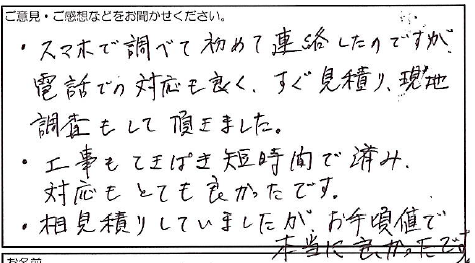 ご意見・ご感想などをお聞かせください。
・スマホで調べて初めて連絡したのですが、
電話での対応も良く、すぐ見積り、現地
調査もして頂きました。
・工事もてきぱき短時間で済み、
対応もとても良かったです。
・相見積りしていましたが、お手頃値で
本当に良かったです
お名前